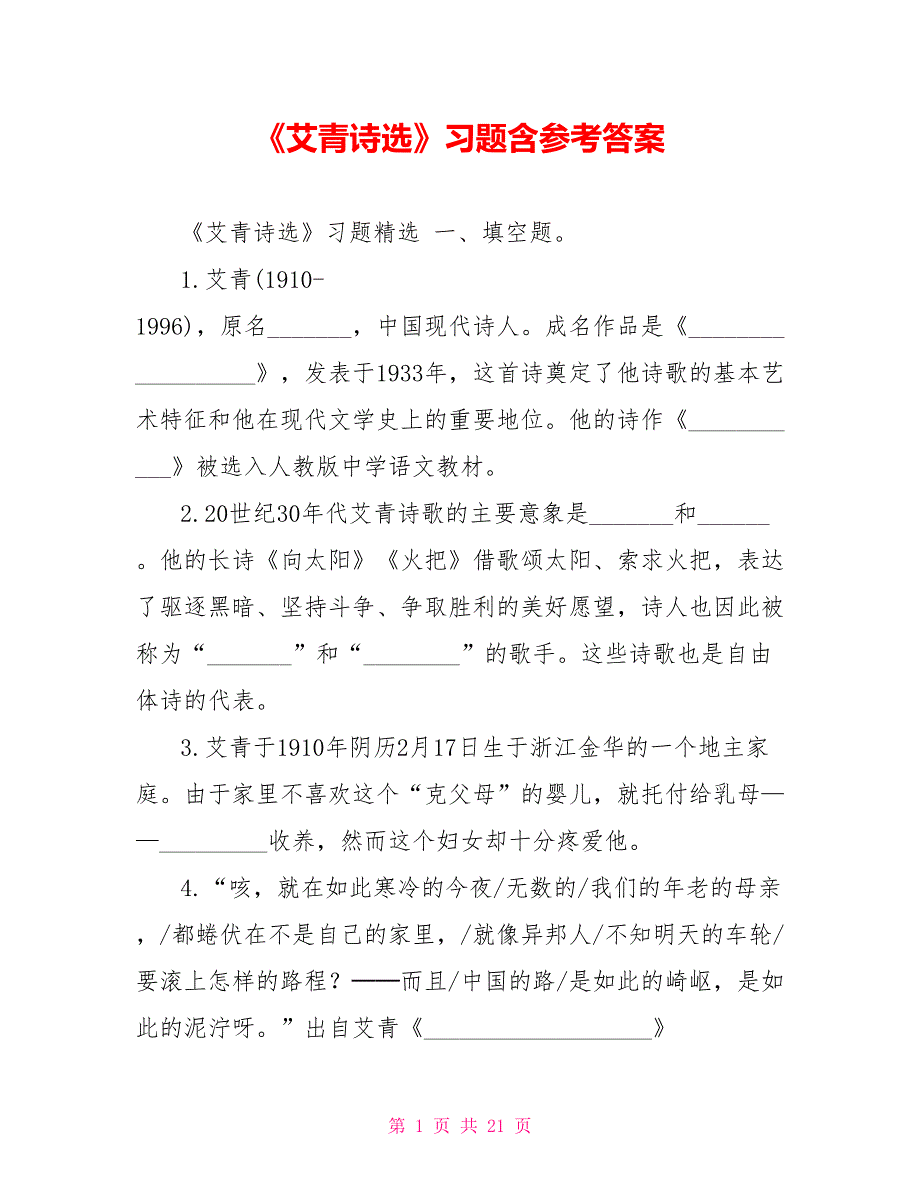 《艾青诗选》习题含参考答案
《艾青诗选》习题精选 一、填空题。
1.艾青(1910-
1996)，原名_______，中国现代诗人。成名作品是《________
__________》，发表于1933年，这首诗奠定了他诗歌的基本艺
术特征和他在现代文学史上的重要地位。他的诗作《________
___》被选入人教版中学语文教材。
2.20世纪30年代艾青诗歌的主要意象是_______和______
。他的长诗《向太阳》《火把》借歌颂太阳、索求火把，表达
了驱逐黑暗、坚持斗争、争取胜利的美好愿望，诗人也因此被
称为“_______”和“________”的歌手。这些诗歌也是自由
体诗的代表。
3.艾青于1910年阴历2月17日生于浙江金华的一个地主家
庭。由于家里不喜欢这个“克父母”的婴儿，就托付给乳母—
—_________收养，然而这个妇女却十分疼爱他。
4.“咳，就在如此寒冷的今夜/无数的/我们的年老的母亲
，/都蜷伏在不是自己的家里，/就像异邦人/不知明天的车轮/
要滚上怎样的路程？——而且/中国的路/是如此的崎岖，是如
此的泥泞呀。”出自艾青《___________________》
第 1 页 共 21 页